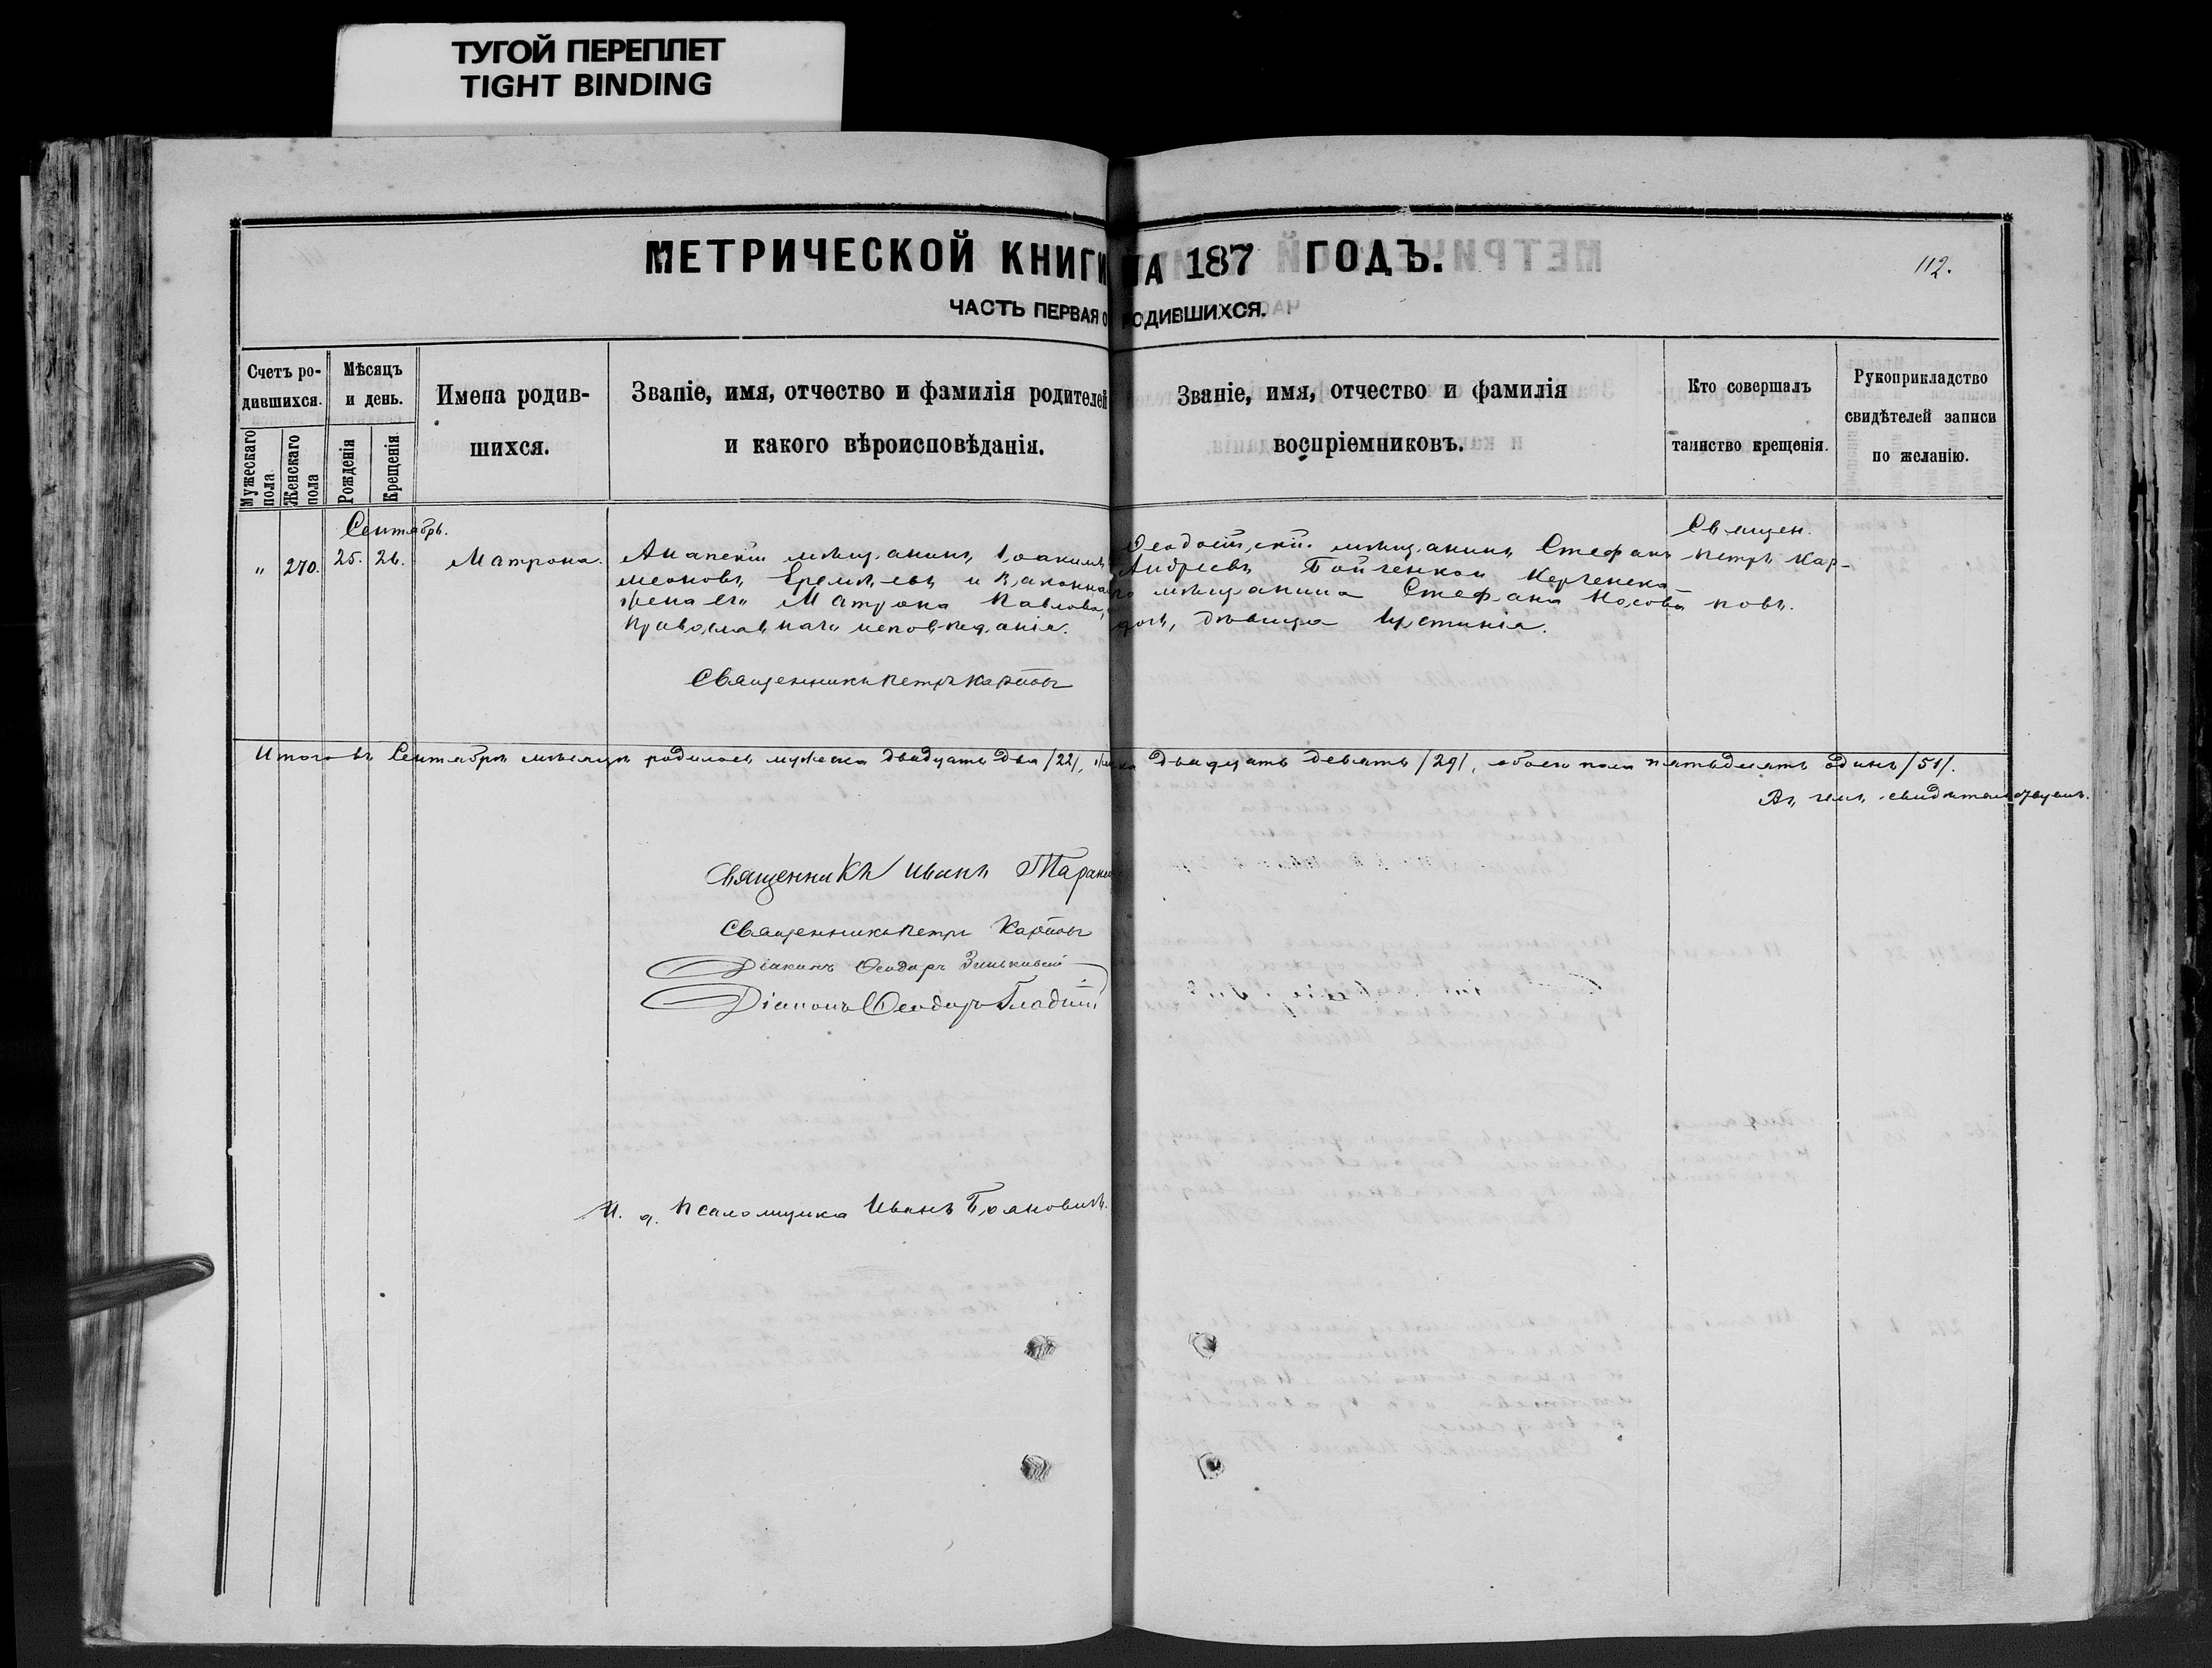 ТУГОЙ ПЕРЕПЛЕТ
TIGHT BINDING
МЕТРИЧЕСКОЙ КНИГИ НА 187 ГОДЪ.
112.
ЧАСТЬ ПЕРВАЯ О РОДИВШИХСЯ.
Счетъ ро-
дившихся.
Мужескаго пола
Женскаго пола
Мѣсяцъ
и день.
Рожденія
Крещенія
Имена родив-
шихся.
Званіе, имя, отчество и фамилія родителей
и какого вѣроисповѣданія.
Званіе, имя, отчество и фамилія
воспріемниковъ.
Кто совершалъ
таинство крещенія.
Рукоприкладство
свидѣтелей записи
по желанію.
Сентябрь.
" 270. 25. 26. Матрона.
Анапскій мѣщанинъ Іоакимъ
меоновъ Еремѣевъ и законная
жена его Матрона Павлова,
православнаго исповѣданія.
Ѳеодосійскій мѣщанинъ Стефанъ
Андреевъ Бойченко и Керченска-
го мѣщанина Стефана Носова
дочь, дѣвица Іустинія.
Священ.
Петръ Кар-
повъ.
Священникъ Петръ Карповъ
Итого въ Сентябрѣ мѣсяцѣ родилось мужеска двадцать два /22/, женска двадцать девять /29/, обоего пола пятьдесятъ одинъ /51/.
Въ чемъ свидѣтельствуемъ.
Священникъ Иванъ
Священникъ Петръ Карповъ
Діаконъ Ѳеодоръ Зинькивскій
Діаконъ Ѳеодоръ Гладкій
И. д. Псаломщика Иванъ Бояновичъ.